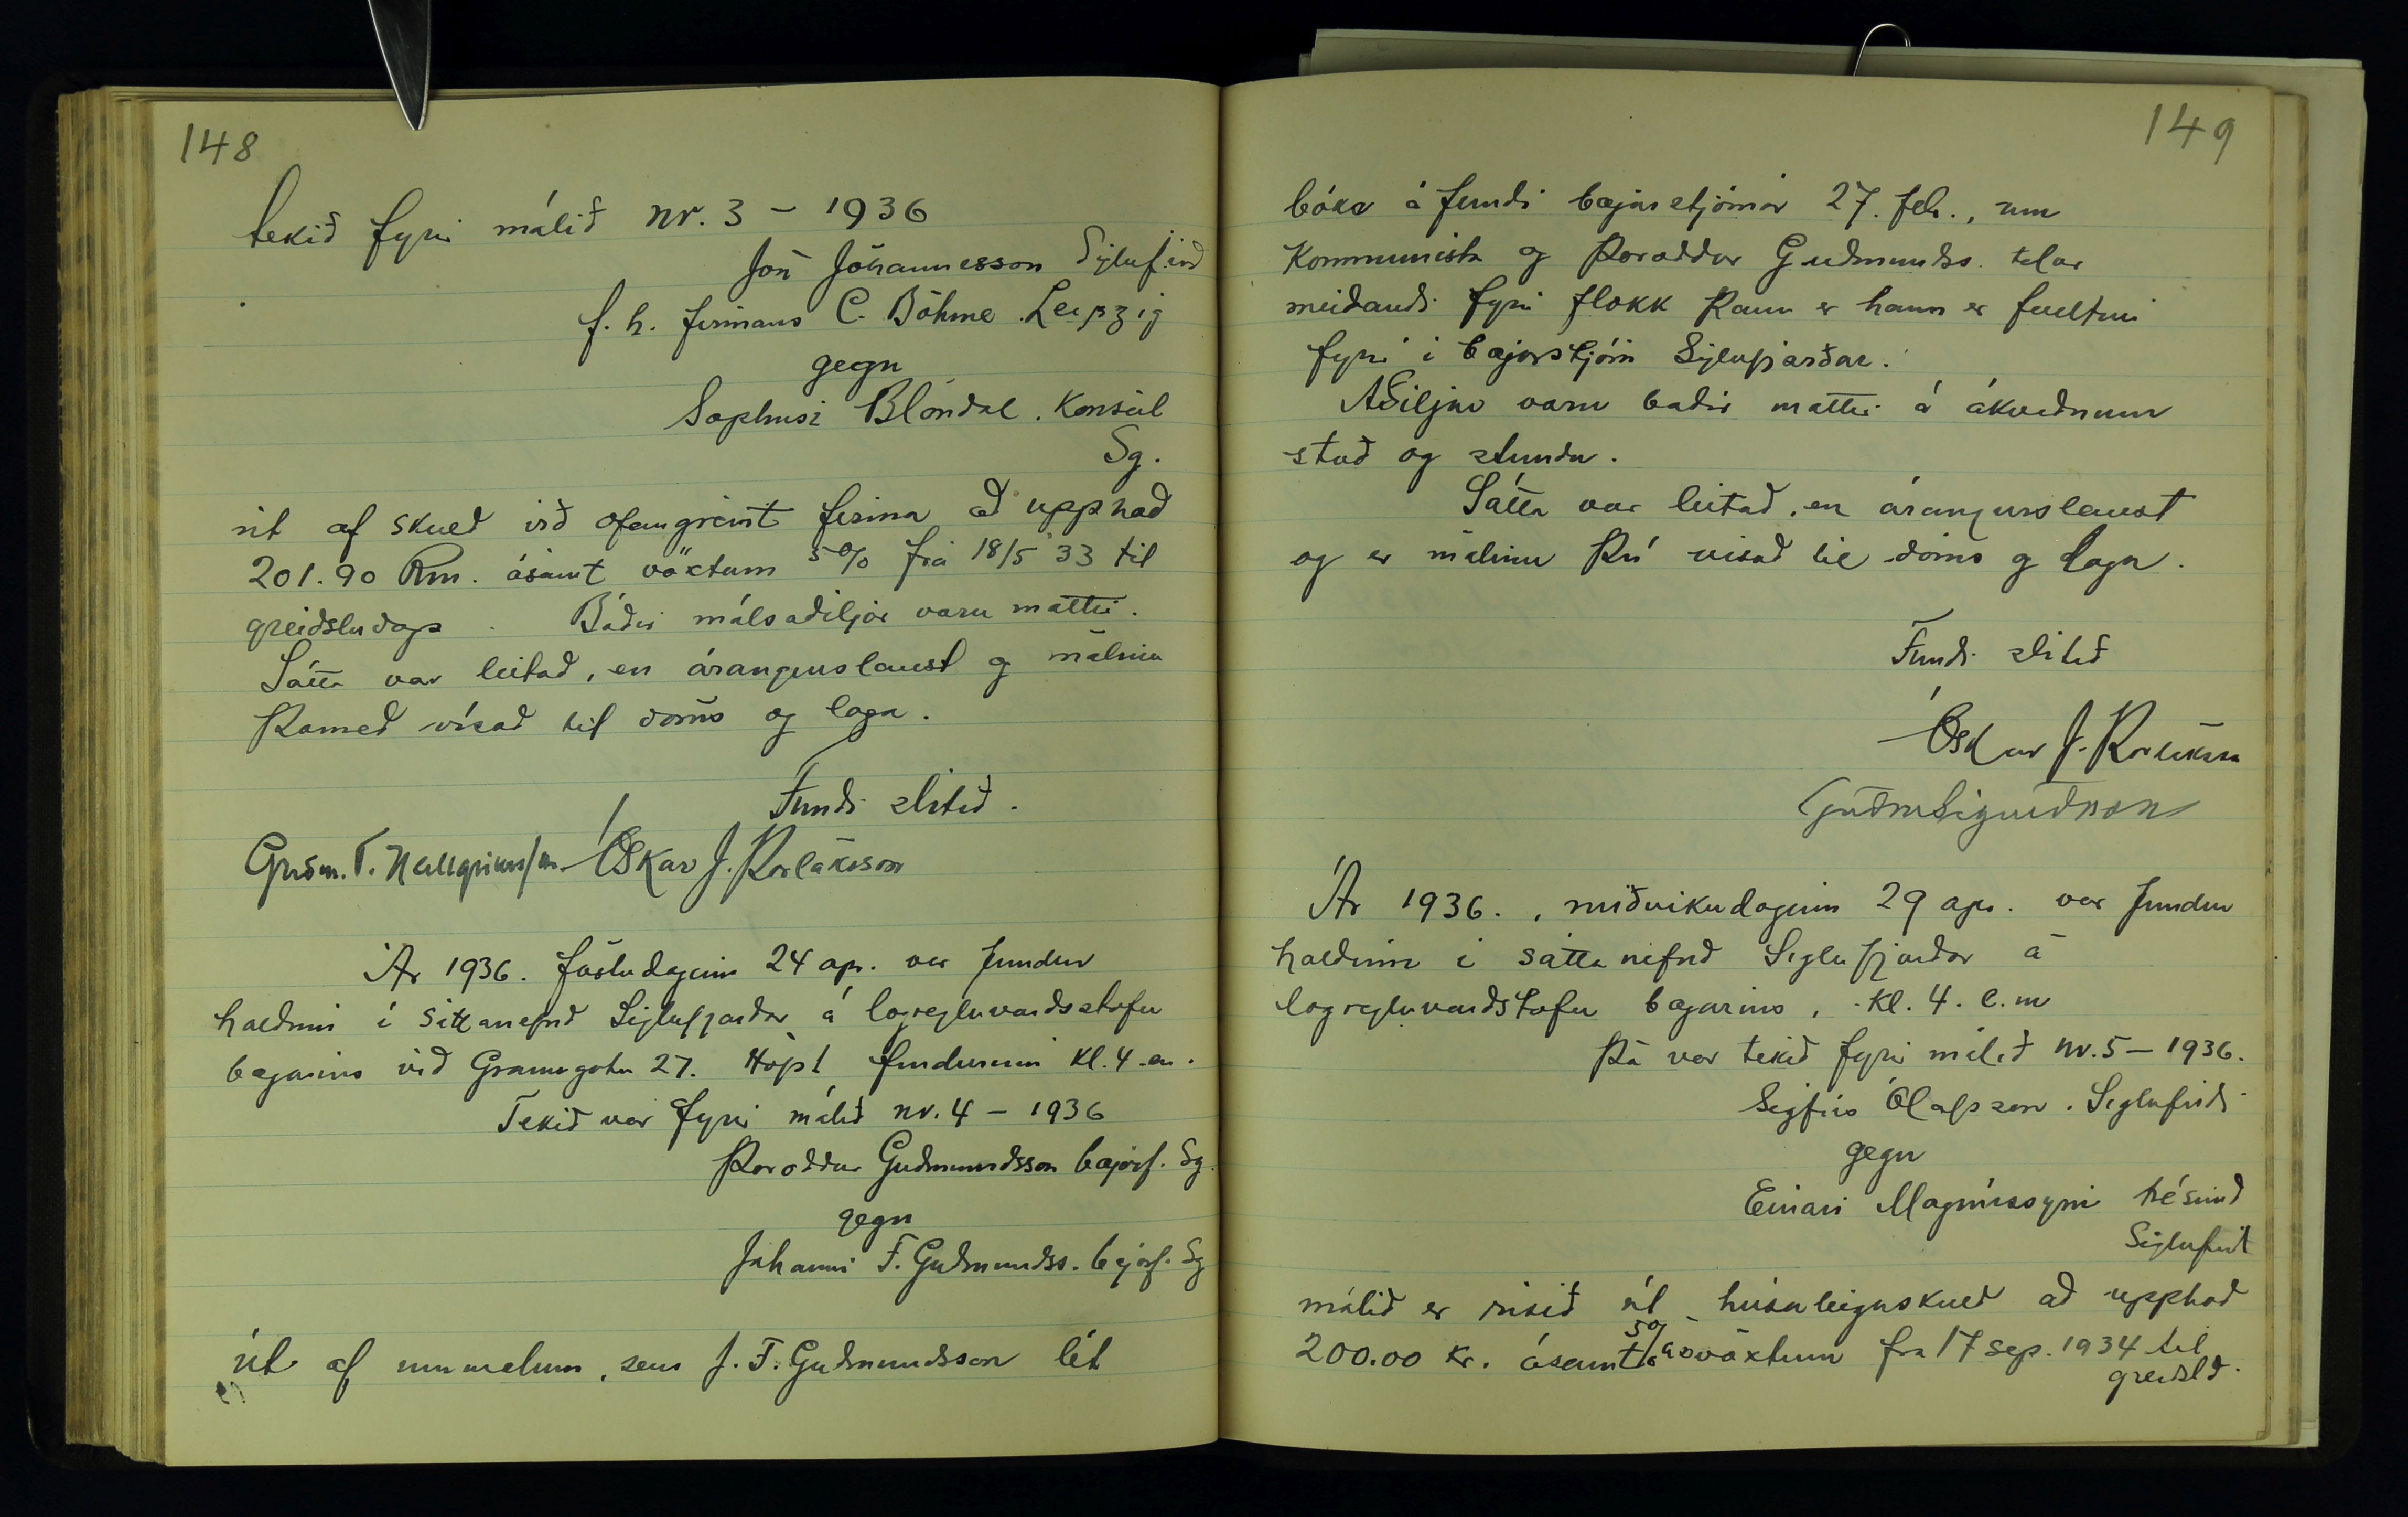 148
tekið fyrir málið nr. 3 - 1936
Jón Jóhannesson Siglufirð
f. h. firmans C. Böhme Leipzig
gegn
Sophusi Blöndal. Konsúl
Sg.
út af skuld við ofangreint firma að upphæð
201.90 Rm. ásamt vöxtum 5% frá 18/5 33 til
greiðsludags. Báðir málsaðiljar voru mættir.
Sátta var leitað, en árangurslaust og málinu
þarmeð vísað til dóms og laga.
Fundi slitið.
Guðm. T. Hallgrímss/on. Óskar J. Þorláksson
Ár 1936. föstudaginn 24 apr. var fundur
haldinn í sáttanefnd Siglufjarðar á lögregluvarðstofu
bæjarins við Gránugötu 27. Hófst fundurinn kl. 4 em.
Tekið var fyrir málið nr. 4 - 1936
Þóroddur Guðmundsson bæjarf. Sg.
gegn
Jóhanni F. Guðmundss. bæjarf. Sg
út af ummælum, sem J. F. Guðmundsson lét
149
bóka á fundi bæjarstjórnar 27. feb., um
Kommunista og Þóroddur Guðmundss. telur
meiðandi fyrir flokk þann er hann er fulltrúi
fyrir í bæjarstjórn Siglufjarðar.
Aðiljar voru báðir mættir á ákveðnum
stað og stundu.
Sátta var leitað, en árangurslaust
og er málinu því vísað til dóms og laga.
Fundi slitið
Óskar J. Þorláksson
Guðm Sigurðsson
Ár 1936., miðvikudaginn 29 apr. var fundur
haldinn í sáttanefnd Siglufjarðar á
lögregluvarðstofu bæjarins, kl. 4. e. m
Þá var tekið fyrir málið nr. 5 - 1936.
Sigfús Ólafsson. Siglufirði
gegn
Einari Magnússyni trésmið
Siglufirði
málið er risið út húsaleiguskuld að upphæð
200.00 kr. ásamt 5% ársvöxtum frá 17 sep. 1934 til
greiðsld.